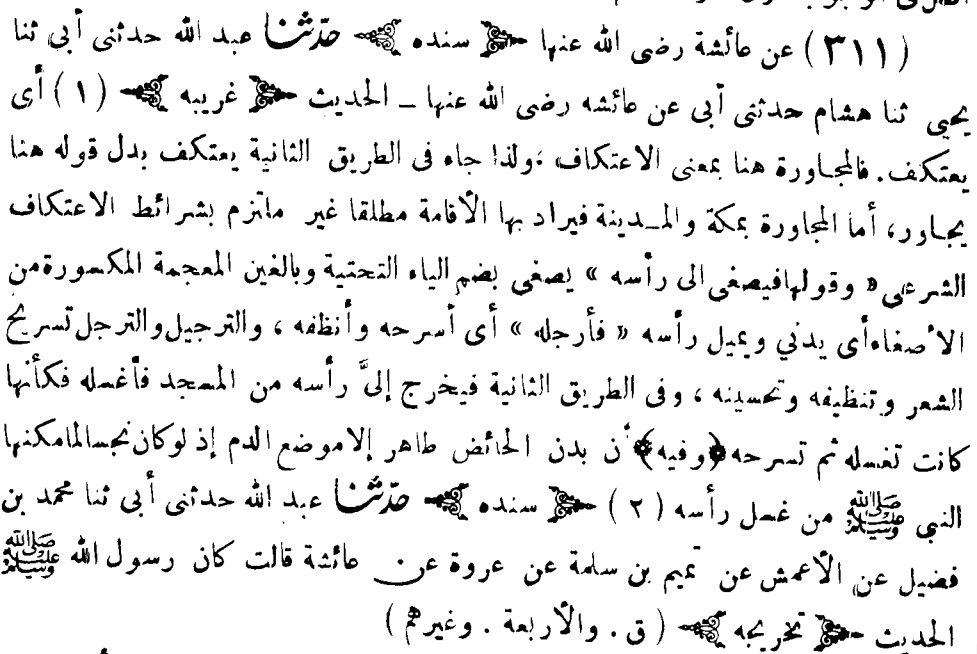 (٣١١) عن عائشة رضى الله عنها ﴿ سنده ﴾ حدّثنا عبد الله حدثنى أبى ثنا
يحيى ثنا هشام حدثنى أبى عن عائشه رضى الله عنها ــ الحديث ﴿ غريبه ﴾ (١) أى
يعتكف. فالمجاورة هنا بمعنى الاعتكاف ،ولذا جاء فى الطريق الثانية يعتكف بدل قوله هنا
يجاور، أما المجاورة بمكة والمدينة فيراد بها الأقامة مطلقا غير ملتزم بشرائط الاعتكاف
الشرعى « وقولها فيصغى الى رأسه » يصغى بضم الياء التحتية وبالغين المعجمة المكسورة من
الأصغاء أى يدني ويميل رأسه « فأرجله » أى أسرحه وأنظفه ، والترجيل والترجل تسريح
الشعر وتنظيفه وتحسينه ، وفى الطريق الثانية فيخرج إلىَّ رأسه من المسجد فأغسله فكأنها
كانت تغسله ثم تسرحه ﴿وفيه﴾ أن بدن الحائض طاهر إلا موضع الدم إذ لو كان نجسا لما مكنها
النبى ﷺ من غسل رأسه (٢) ﴿ سنده ﴾ حدّثنا عبد الله حدثنى أبى ثنا محمد بن
فضيل عن الأعمش عن تميم بن سلمة عن عروة عن عائشة قالت كان رسول الله ﷺ
الحديث ﴿ تخريجه ﴾ (ق . والأربعة . وغيرهم)